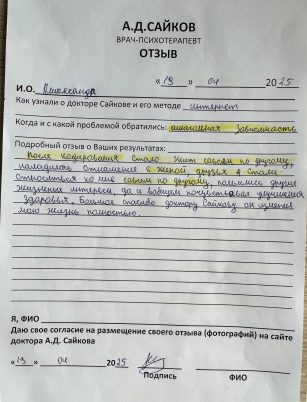 А.Д.САЙКОВ
ВРАЧ-ПСИХОТЕРАПЕВТ
ОТЗЫВ
«13» 04 2025
И.О. Александр
Как узнали о докторе Сайкове и его методе интернет
Когда и с какой проблемой обратились: алкогольная зависимость
Подробный отзыв о Ваших результатах:
После кодирования стало жит совсем по другому,
наладились отнашения с женой, друзья я стали
относиться ко мне совсем по другому, появились другие
жизненые интересы, да и вобщем почувствовал улучшения
здоровья. Большое спасибо доктору Сайкову он изменил
мою жизнь полностью.
Я, ФИО
Даю свое согласие на размещение своего отзыва (фотографий) на сайте
доктора А.Д. Сайкова
«13» 04 2025
Подпись ФИО